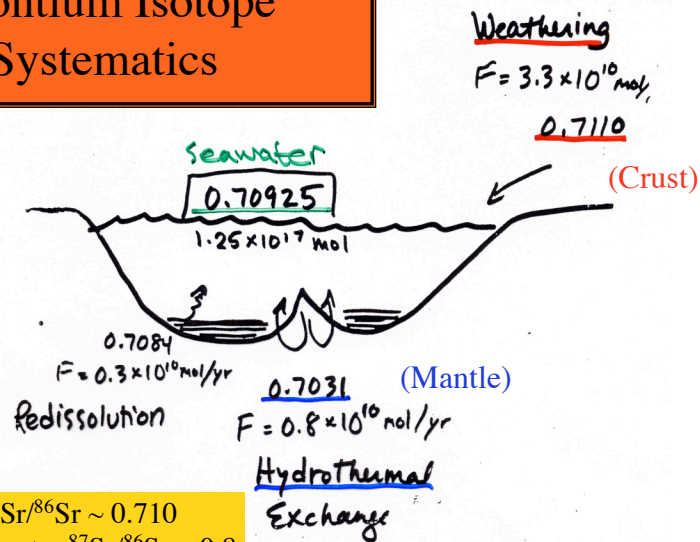 Isotope
Systematics
Weathering
F = 3.3 x 10¹⁰ mol,
0.7110
(Crust)
seawater
0.70925
1.25 x 10¹⁷ mol
0.7084
F = 0.3 x 10¹⁰ mol/yr
Redissolution
0.7031
(Mantle)
F = 0.8 x 10¹⁰ mol/yr
Hydrothermal
Exchange
Sr/⁸⁶Sr ~ 0.710